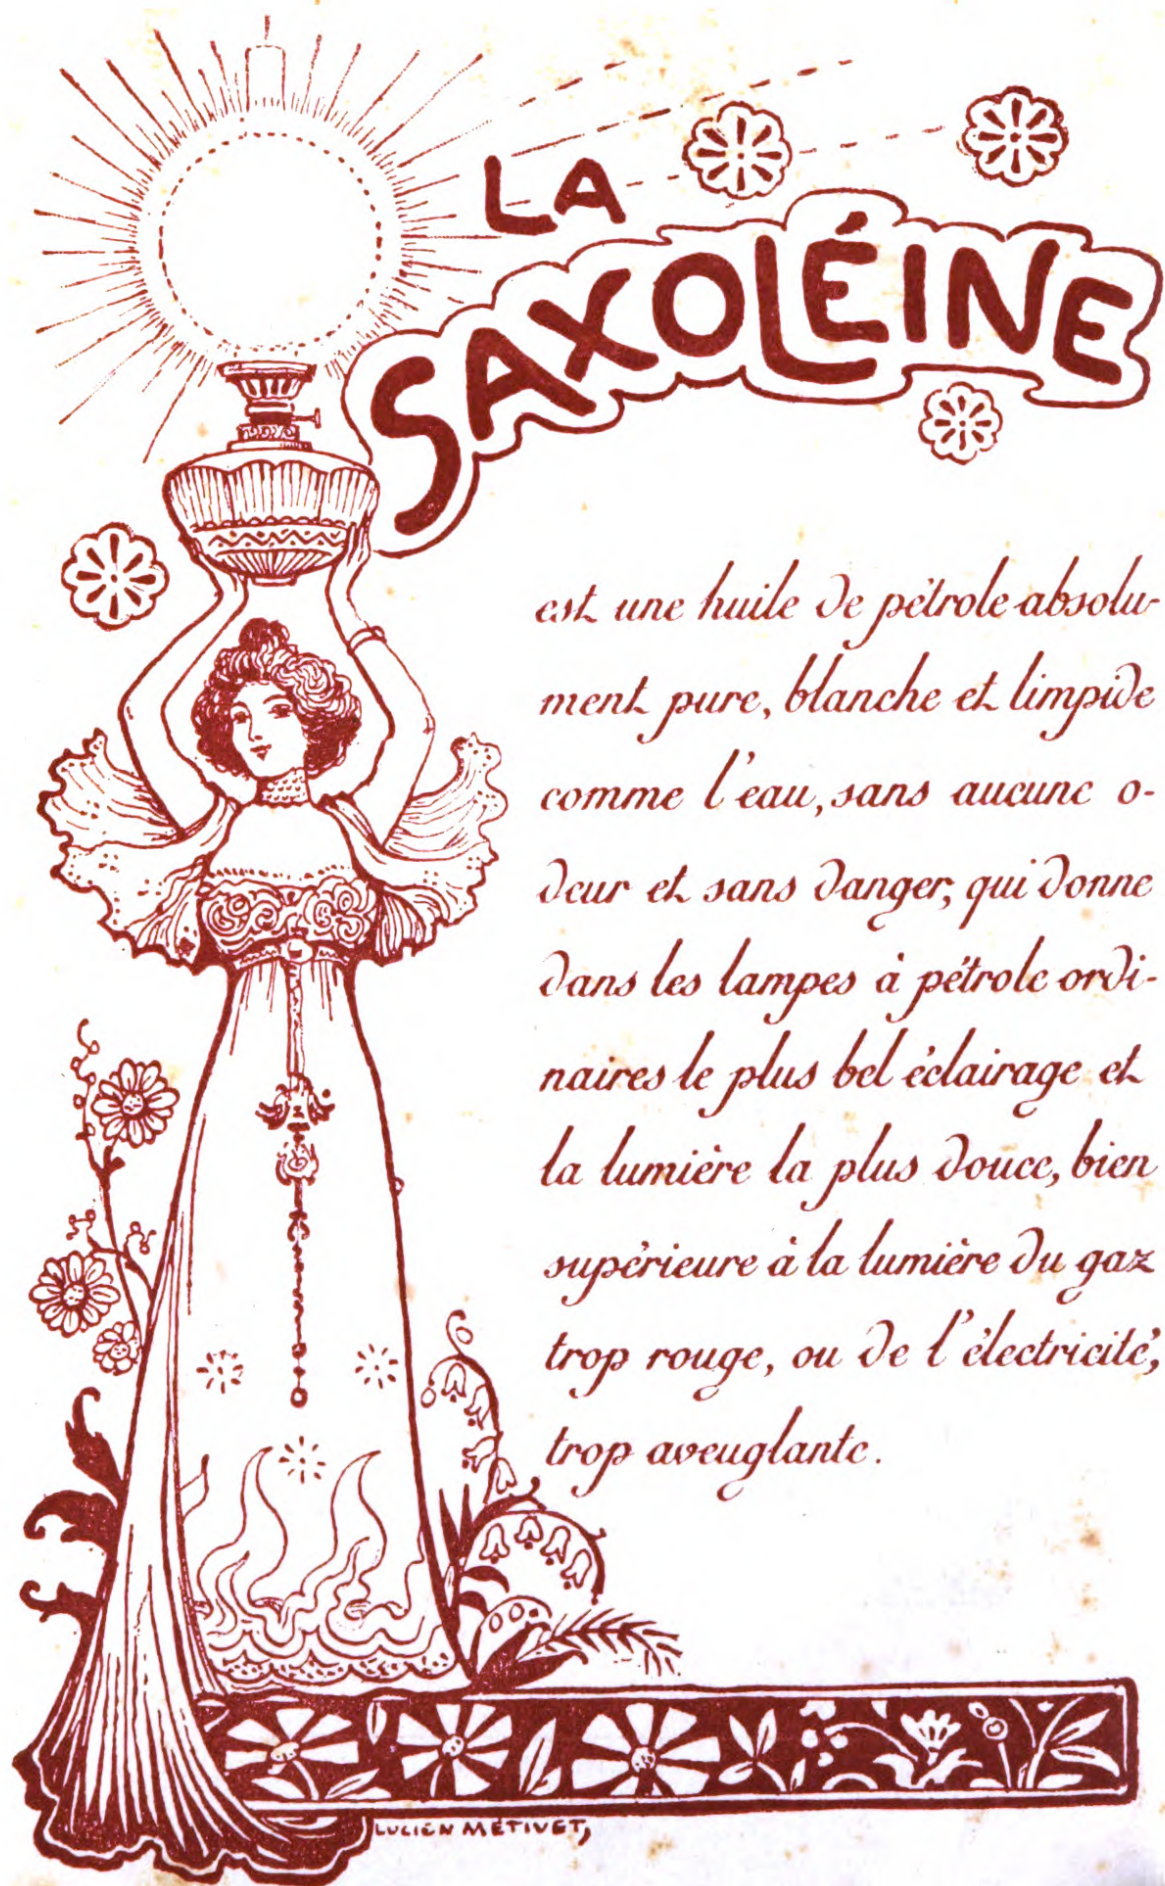 LA
SAXOLÉINE
est une huile de pétrole absolu-
ment pure, blanche et limpide
comme l'eau, sans aucune o-
deur et sans danger, qui donne
dans les lampes à pétrole ordi-
naires le plus bel éclairage et
la lumière la plus douce, bien
supérieure à la lumière du gaz
trop rouge, ou de l'électricité,
trop aveuglante.
LUCIEN MÉTIVET,